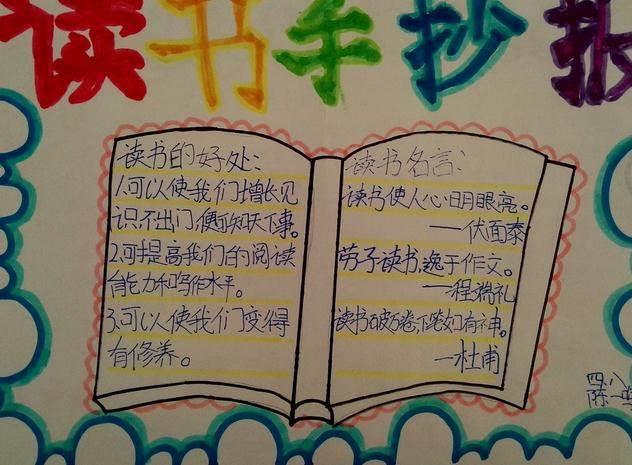 读书手抄报
读书的好处:
1.可以使我们增长见
识,不出门,便可知天下事。
2.可提高我们的阅读
能力和写作水平。
3.可以使我们变得
有修养。
读书名言:
读书使人心明眼亮。
——伏尔泰
劳于读书,逸于作文。
——程端礼
读书破万卷,下笔如有神。
—杜甫
四、八
陈一